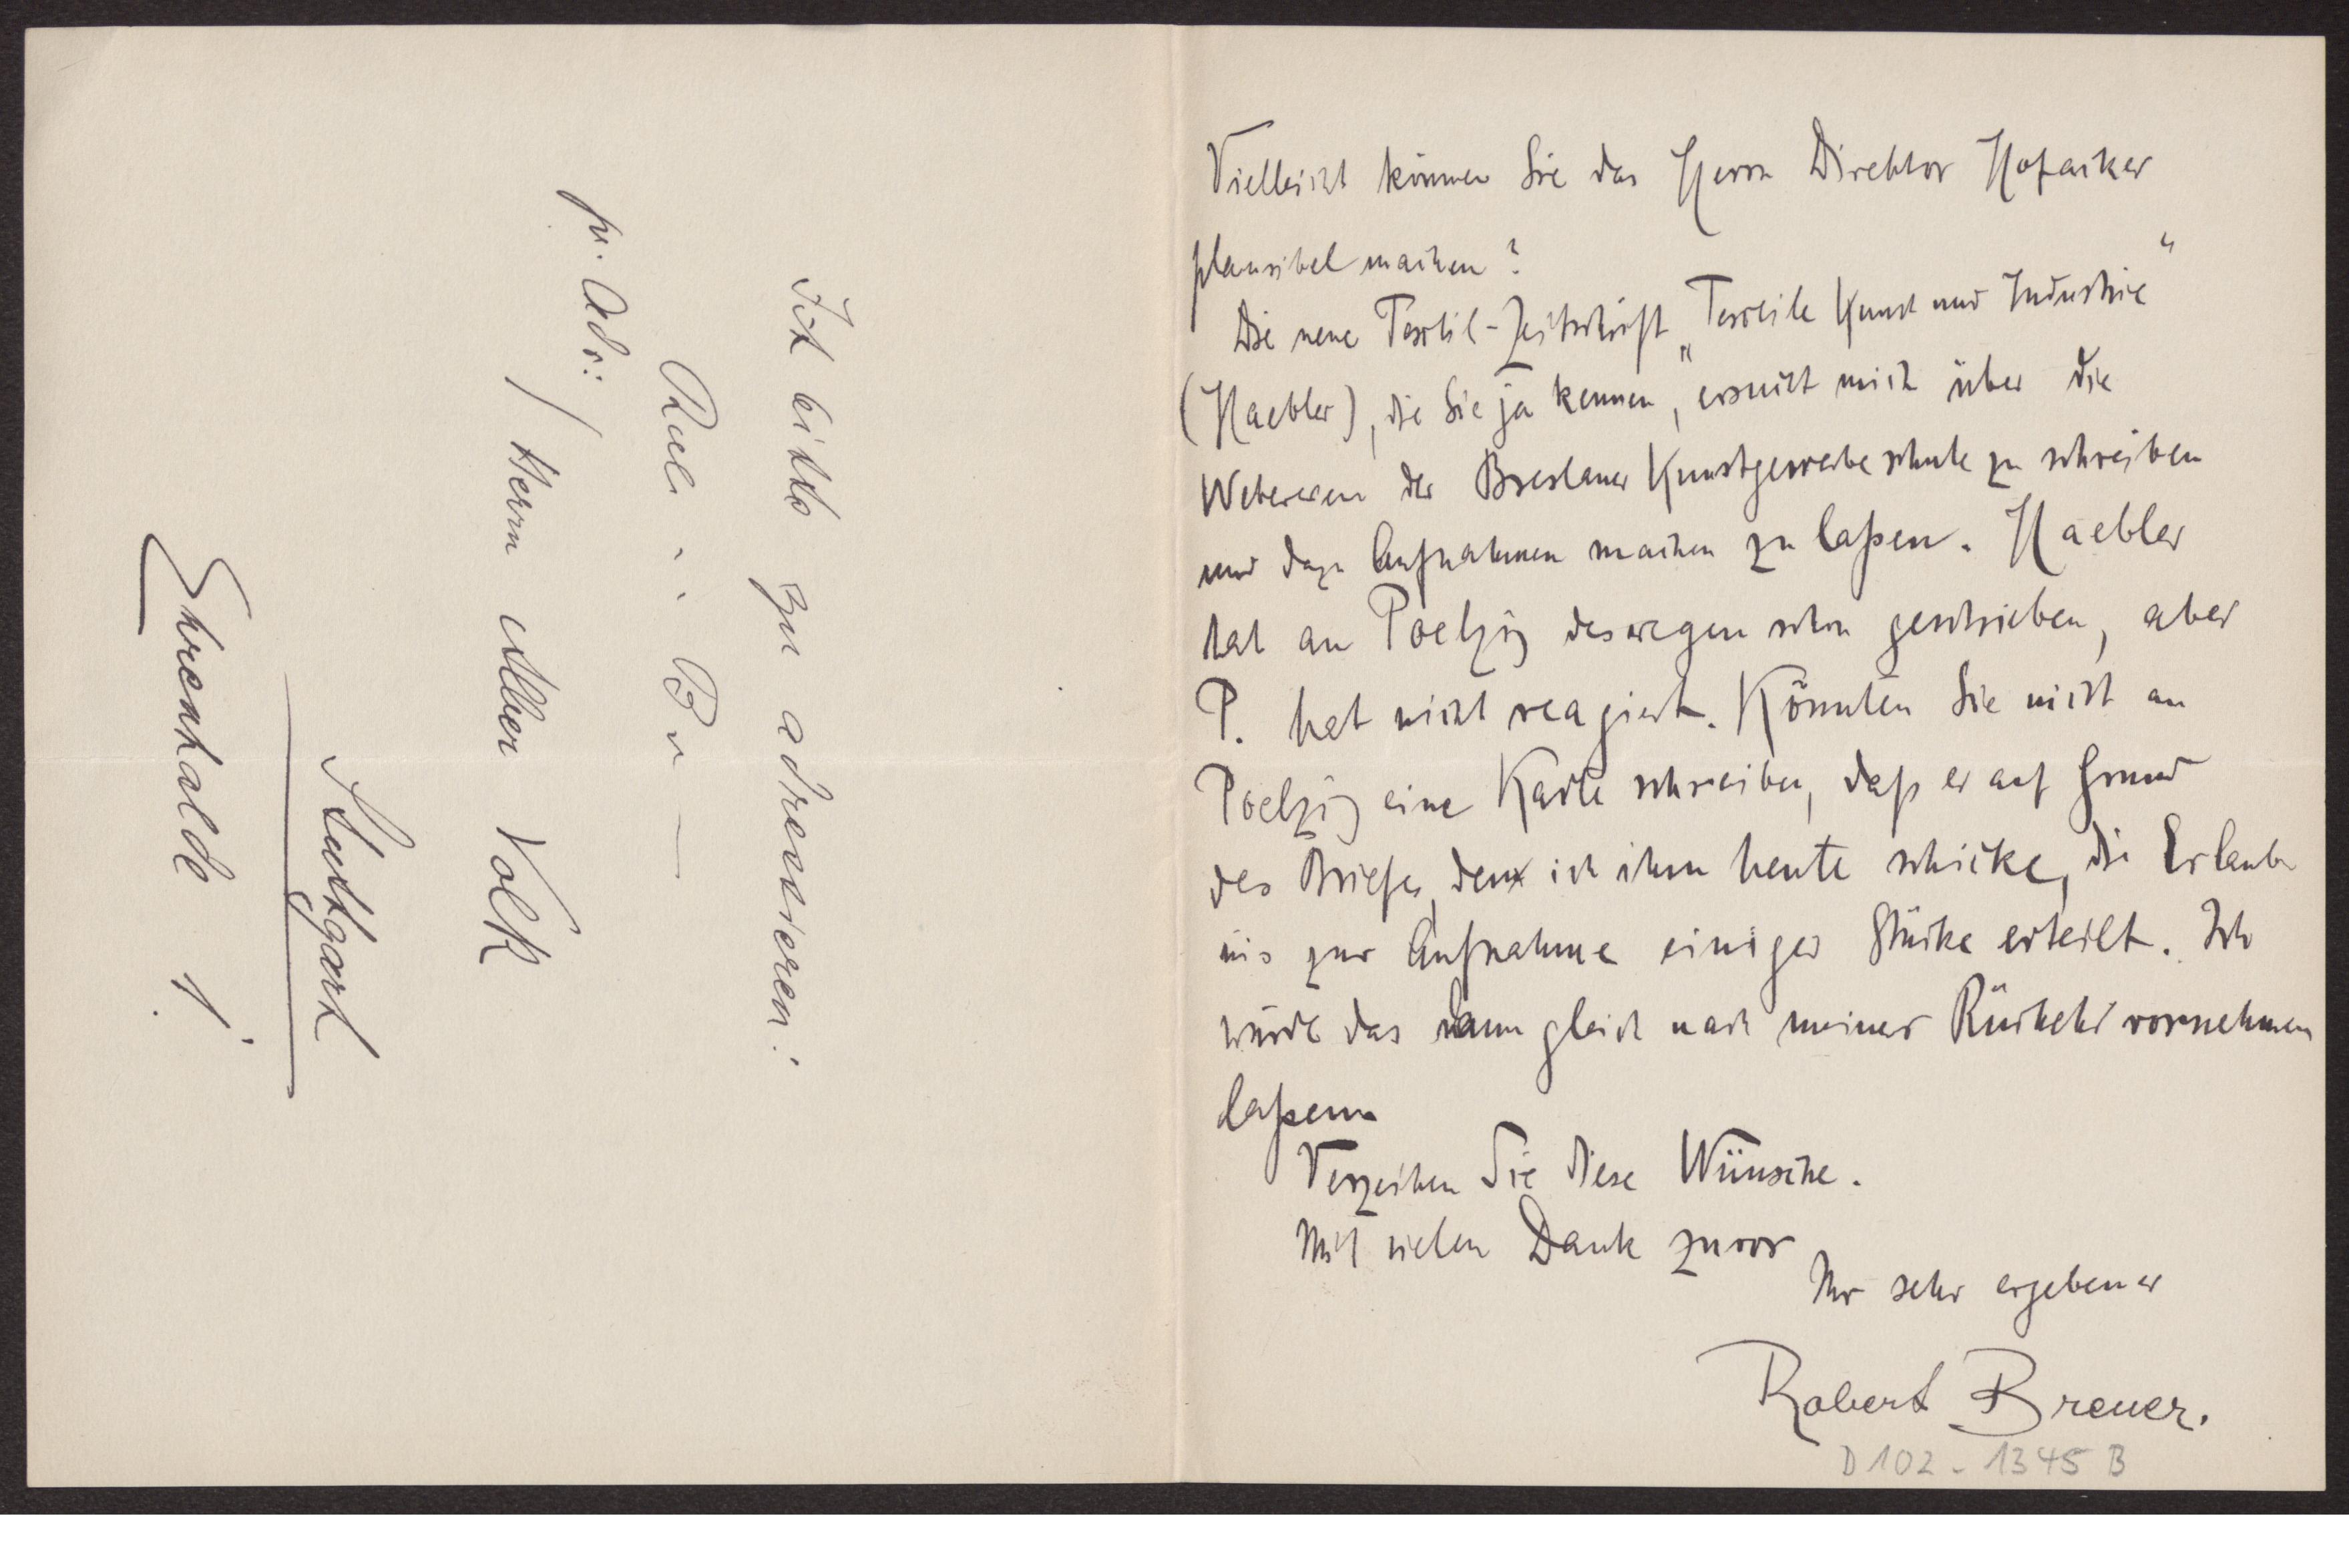 Ich bitte zu adressieren:
Rob. Br —
pr. Adr:
/ Herrn Alber Volk
Stuttgart
Ehrenhalde 1.
Vielleicht können Sie das Herrn Direktor Hofacker
plausibel machen?
Die neue Textil-Zeitschrift „Textile Kunst und Industrie“
(Haebler), die Sie ja kennen, ersucht mich über die
Webereien der Breslauer Kunstgewerbeschule zu schreiben
und dazu Aufnahmen machen zu laßen. Haebler
hat an Poelzig deswegen schon geschrieben, aber
P. hat nicht reagiert. Könnten Sie nicht an
Poelzig eine Karte schreiben, daß er auf Grund
des Briefes, den ich ihm heute schicke, die Erlaub
nis zur Aufnahme einiger Stücke erteilt. Ich
würde das dann gleich nach meiner Rückkehr vornehmen
laßen.
Verzeihen Sie diese Wünsche.
Mit vielen Dank zuvor
Ihr sehr ergebener
Robert Breuer.
D 102 - 1345 B